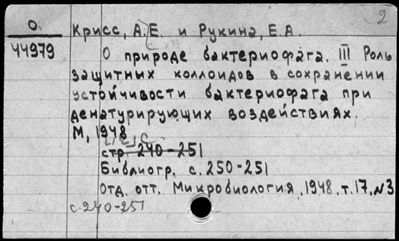 2
О.
44979
Крисс, А.Е. и Рукина, Е.А.
О природе бактериофага. III Роль
защитных коллоидов в сохранении
устойчивости бактериофага при
денатурирующих воздействиях.
М, 1948
[12] с.
стр. 240-251
Библиогр. с. 250-251
Отд. отт. Микробиология, 1948, т. 17, №3
с. 240-251